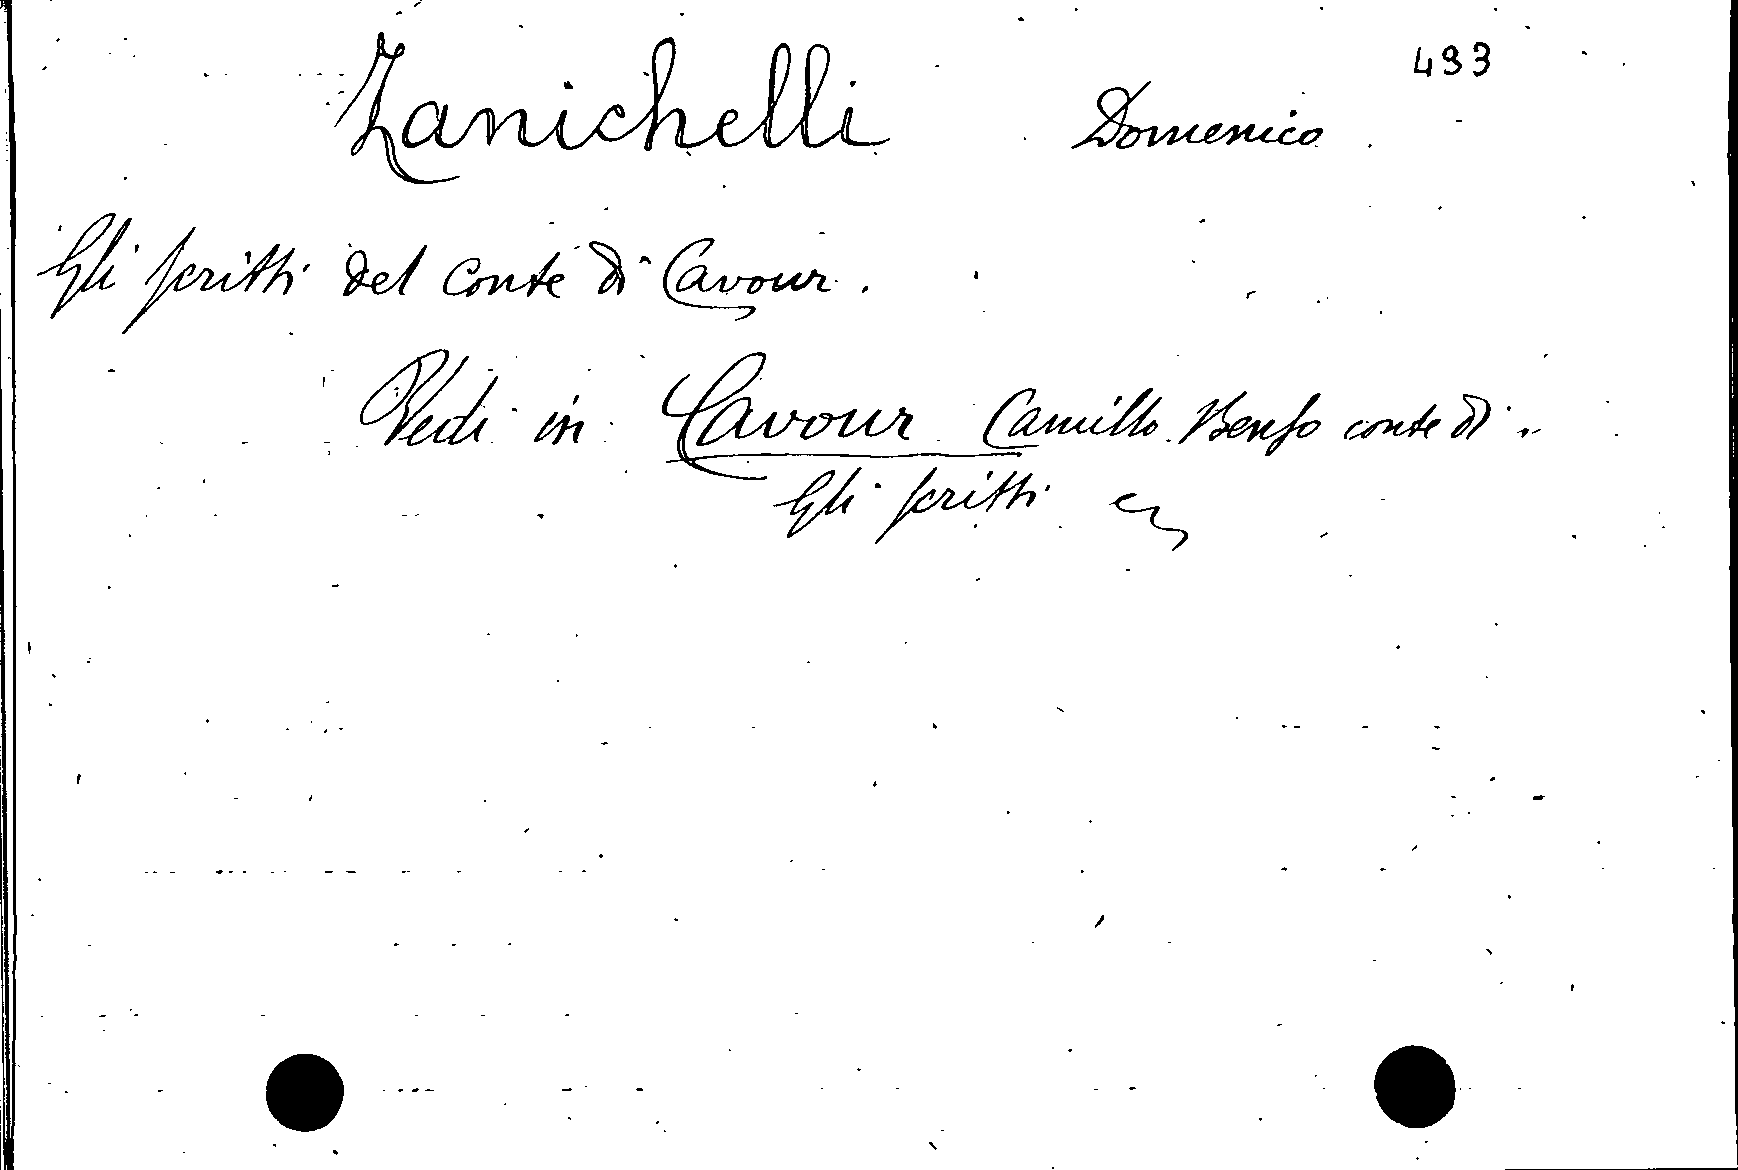 493
Zanichelli Domenico
Gli scritti del conte di Cavour.
Vedi in Cavour Camillo Benso conte di..
Gli scritti